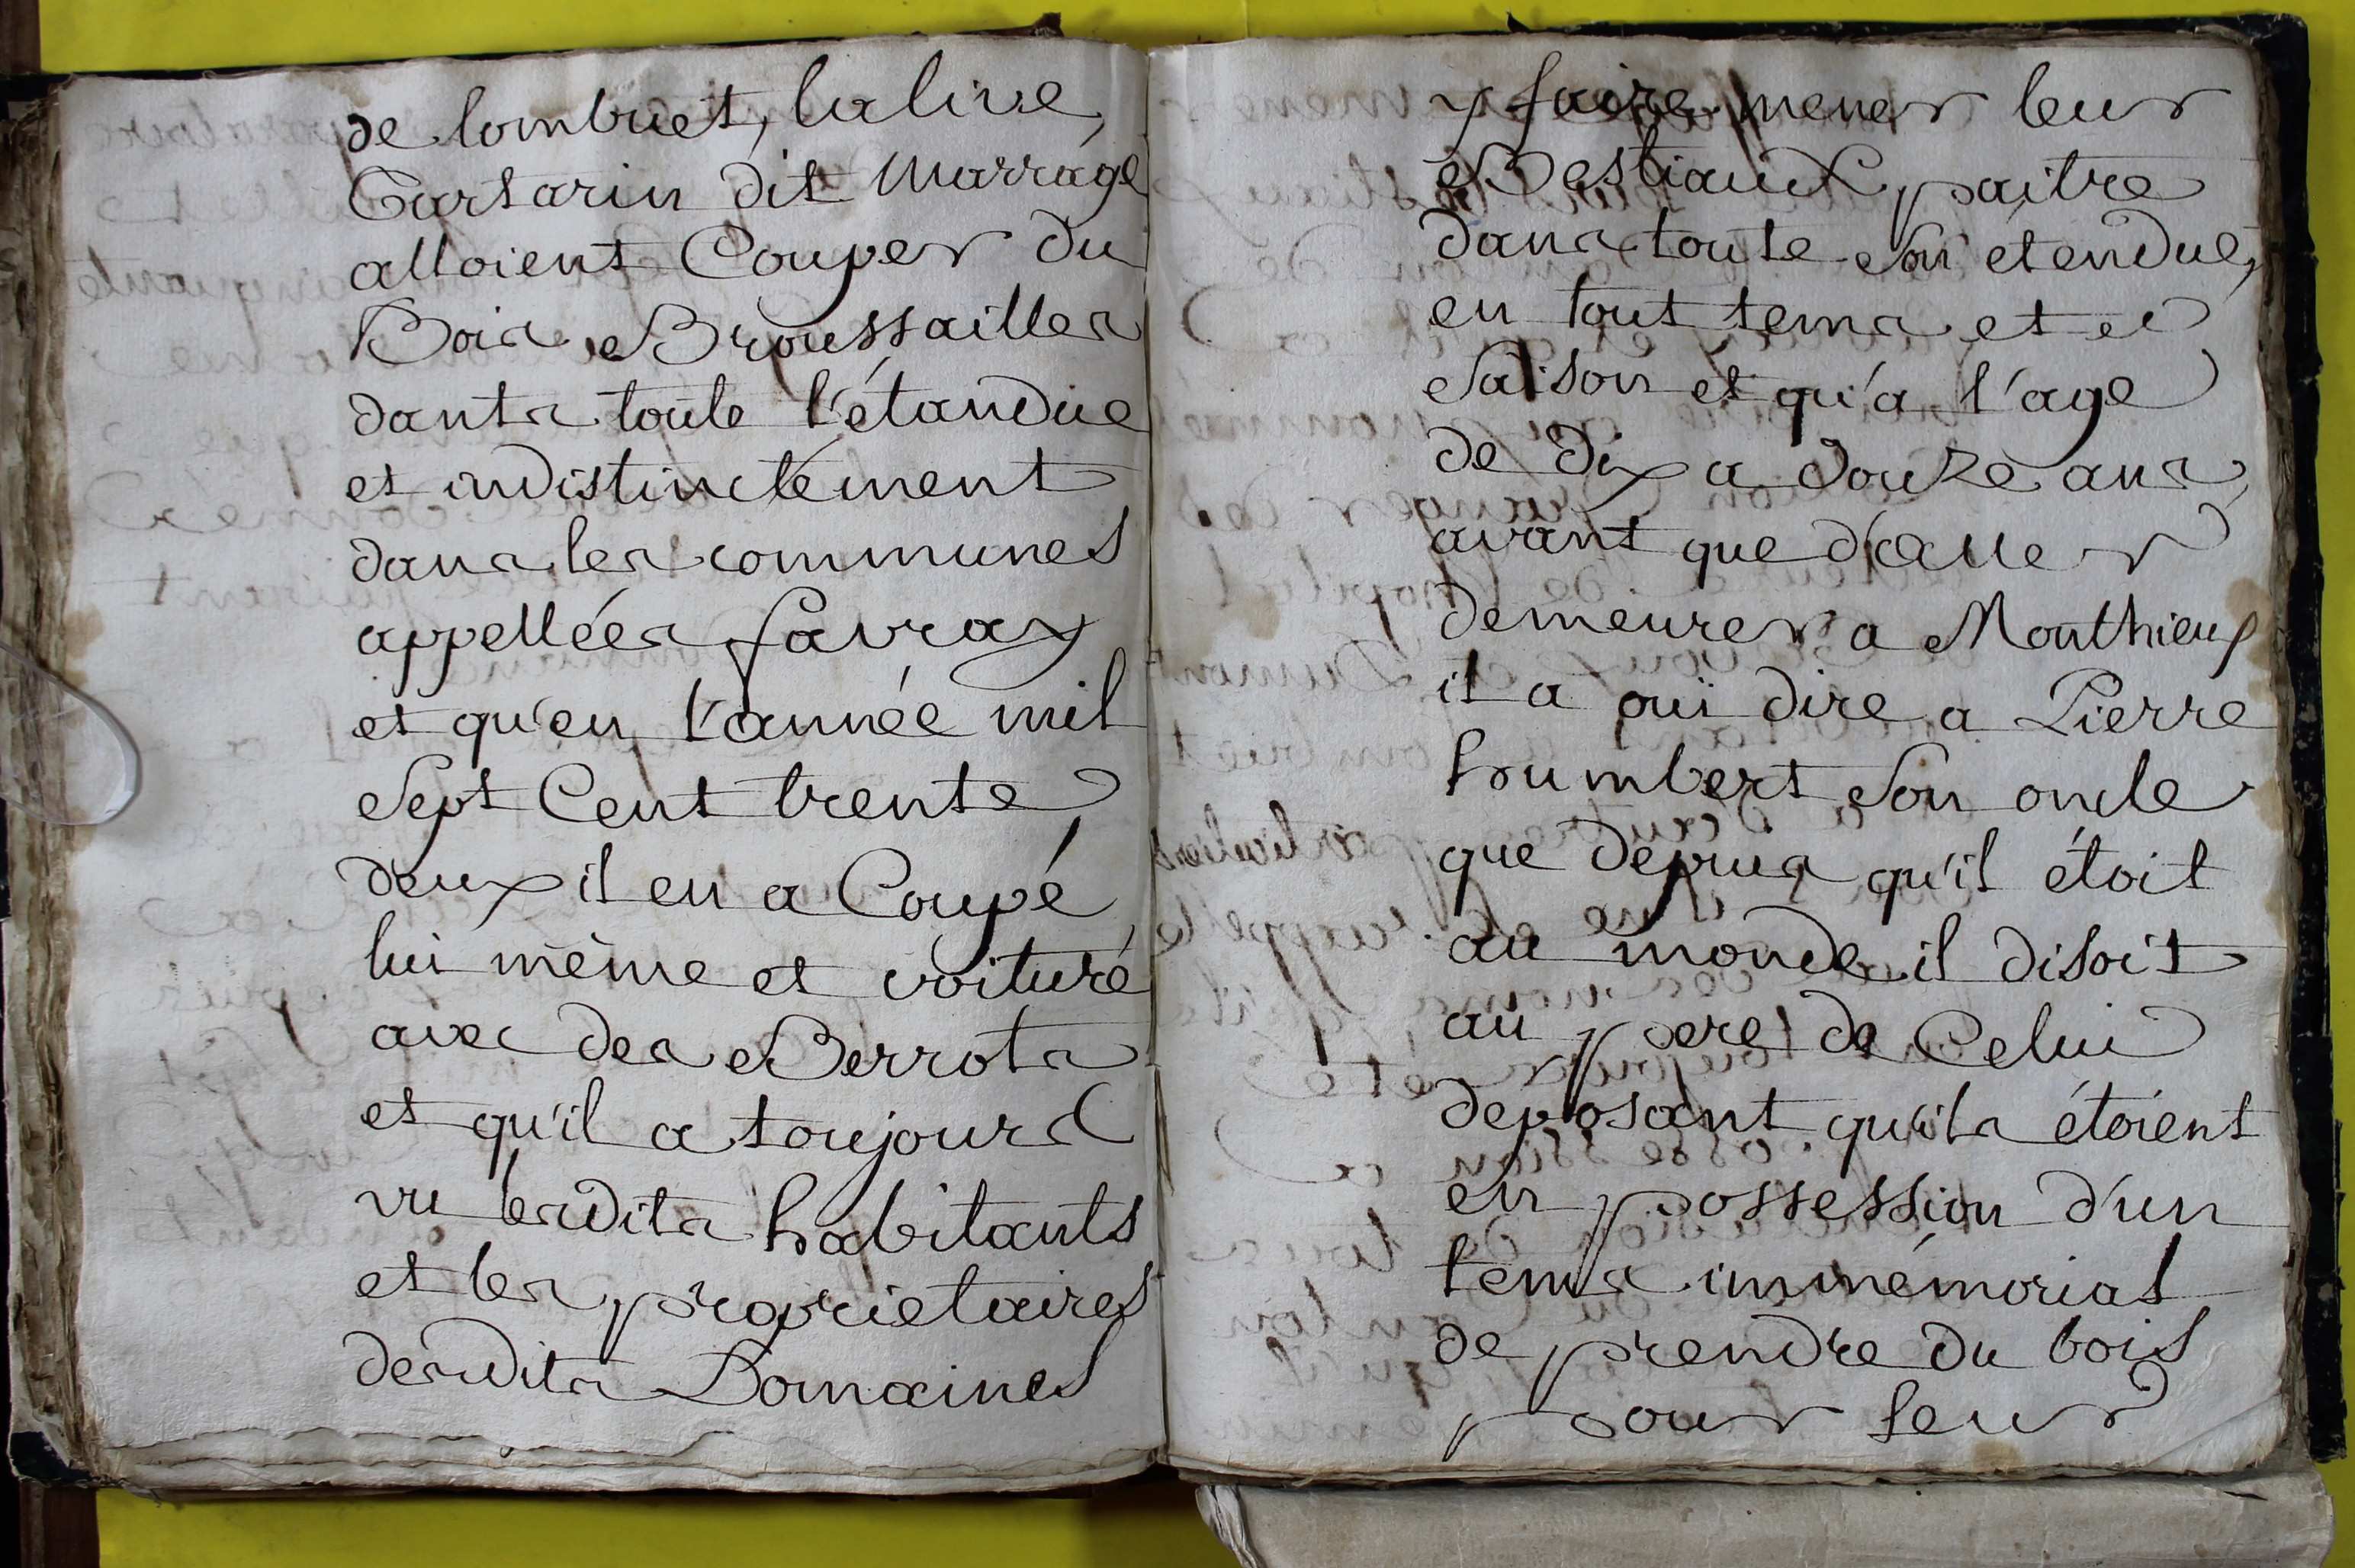 de lombriet, la live,
Tartarin dit Marrage
alloient Couper du
Bois, Broussailles
dants toute l'étandue
et indistinctement
dans les communes
appellées favray
et qu'en l'année mil
Sept Cent trente
deux il en a Coupé
lui même et voituré
avec des Berrots
et qu'il a toujours
vu lesdits habitants
et les proprietaires
desdits Domaines
y faire mener leur
Bestiaux paitre
dans toute son étendue,
en tout tems et
Saison et qu'a l'age
de dix a douze ans
avant que d'aller
demeurer a Monthieux
il a ouï dire a Pierre
humbert son oncle
que depuis qu'il étoit
au monde il disoit
au pere de Celui
deposant qu'ils étoient
en possession d'un
tems immémorial
de prendre du bois
pour leur